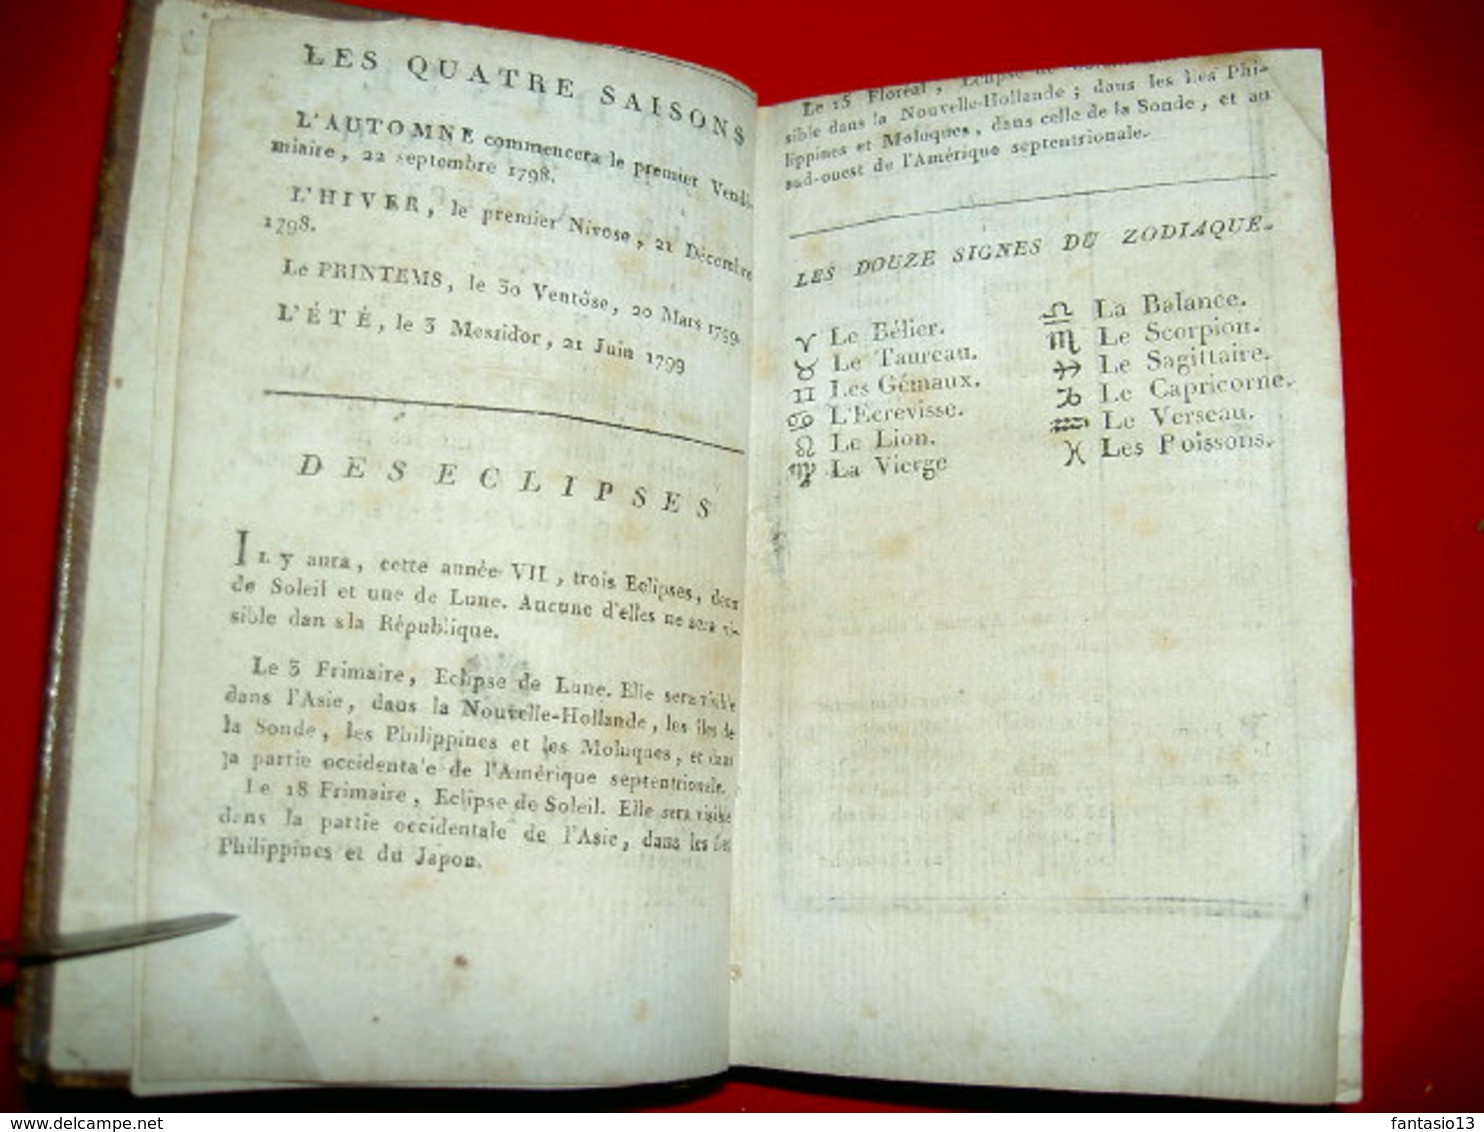 LES QUATRE SAISONS
L'AUTOMNE commencera le premier Vendé-
miaire, 22 septembre 1798.
L'HIVER, le premier Nivose, 21 Décembre
1798.
Le PRINTEMS, le 30 Ventôse, 20 Mars 1799.
L'ÉTÉ, le 3 Messidor, 21 Juin 1799
DES ECLIPSES
IL y aura, cette année VII, trois Eclipses, deux
de Soleil et une de Lune. Aucune d'elles ne sera vi-
sible dan sla République.
Le 3 Frimaire, Eclipse de Lune. Elle sera visible
dans l'Asie, dans la Nouvelle-Hollande, les îles de
la Sonde, les Philippines et les Moluques, et dans
la partie occidentale de l'Amérique septentrionale.
Le 18 Frimaire, Eclipse de Soleil. Elle sera visible
dans la partie occidentale de l'Asie, dans les îles
Philippines et du Japon.
Le 15 Floréal, Eclipse de
sible dans la Nouvelle-Hollande; dans les îles Phi-
lippines et Moluques, dans celle de la Sonde, et au
sud-ouest de l'Amérique septentrionale.
LES DOUZE SIGNES DU ZODIAQUE.
♈ Le Bélier.
♉ Le Taureau.
♊ Les Gémaux.
♋ L'Ecrevisse.
♌ Le Lion.
♍ La Vierge
♎ La Balance.
♏ Le Scorpion.
♐ Le Sagittaire.
♑ Le Capricorne.
♒ Le Verseau.
♓ Les Poissons.
www.delcampe.net
fantasio13